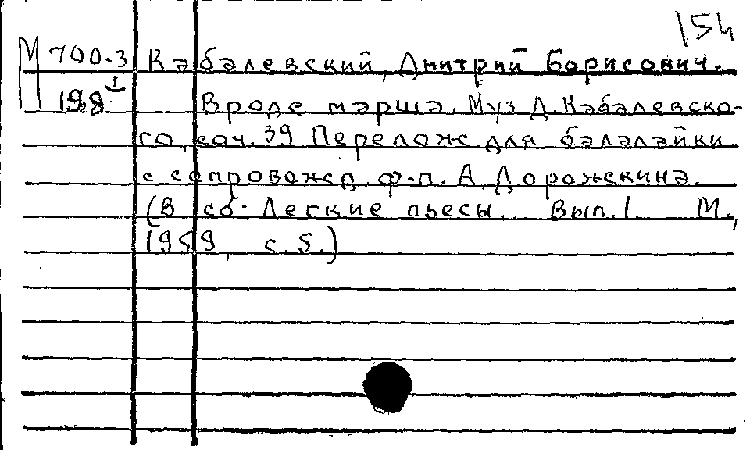 154
М 700-3 Кабалевский, Дмитрий Борисович.
198 Вроде марша. Муз. Д. Кабалевско-
го, соч. 39 Перелож. для балалайки
с сопровожд. ф-п. А. Дорожкина.
(В сб. Легкие пьесы. Вып. 1 М.,
1959, с. 5.)